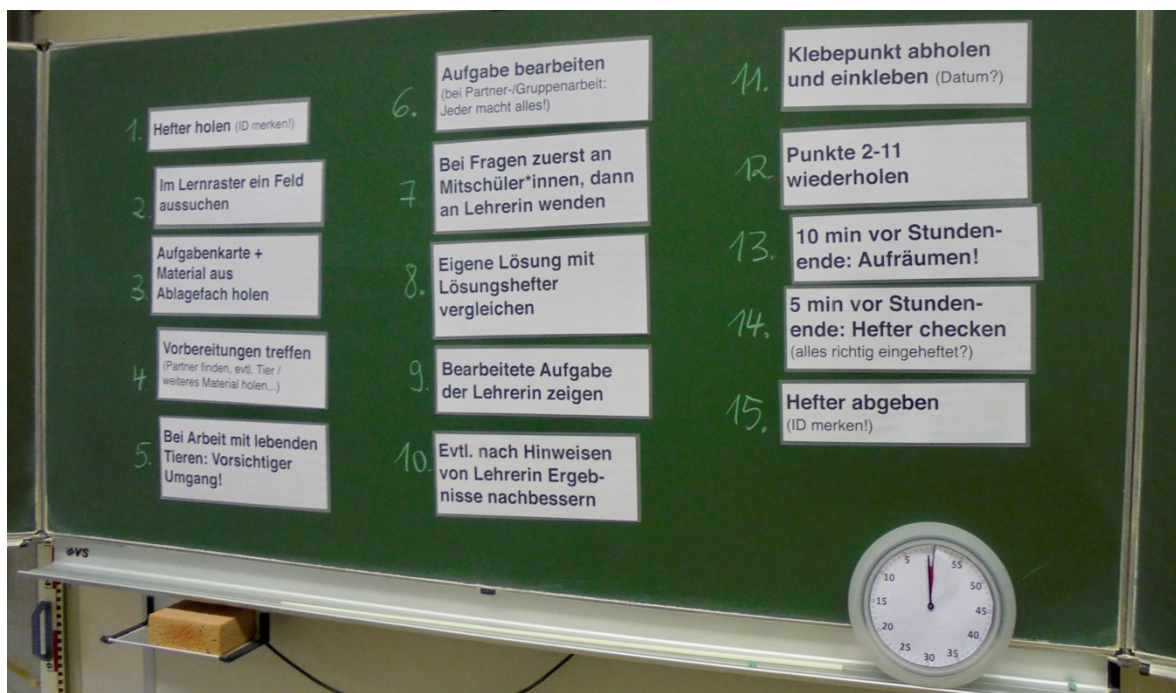 1. Hefter holen (ID merken!)
2. Im Lernraster ein Feld
aussuchen
3. Aufgabenkarte +
Material aus
Ablagefach holen
4 Vorbereitungen treffen
(Partner finden, evtl. Tier /
weiteres Material holen...)
5. Bei Arbeit mit lebenden
Tieren: Vorsichtiger
Umgang!
6. Aufgabe bearbeiten
(bei Partner-/Gruppenarbeit:
Jeder macht alles!)
7 Bei Fragen zuerst an
Mitschüler*innen, dann
an Lehrerin wenden
8. Eigene Lösung mit
Lösungshefter
vergleichen
9. Bearbeitete Aufgabe
der Lehrerin zeigen
10. Evtl. nach Hinweisen
von Lehrerin Ergeb-
nisse nachbessern
11. Klebepunkt abholen
und einkleben (Datum?)
12. Punkte 2-11
wiederholen
13. 10 min vor Stunden-
ende: Aufräumen!
14. 5 min vor Stunden-
ende: Hefter checken
(alles richtig eingeheftet?)
15. Hefter abgeben
(ID merken!)
VS
0
55
50
45
40
35
30
25
20
15
10
5